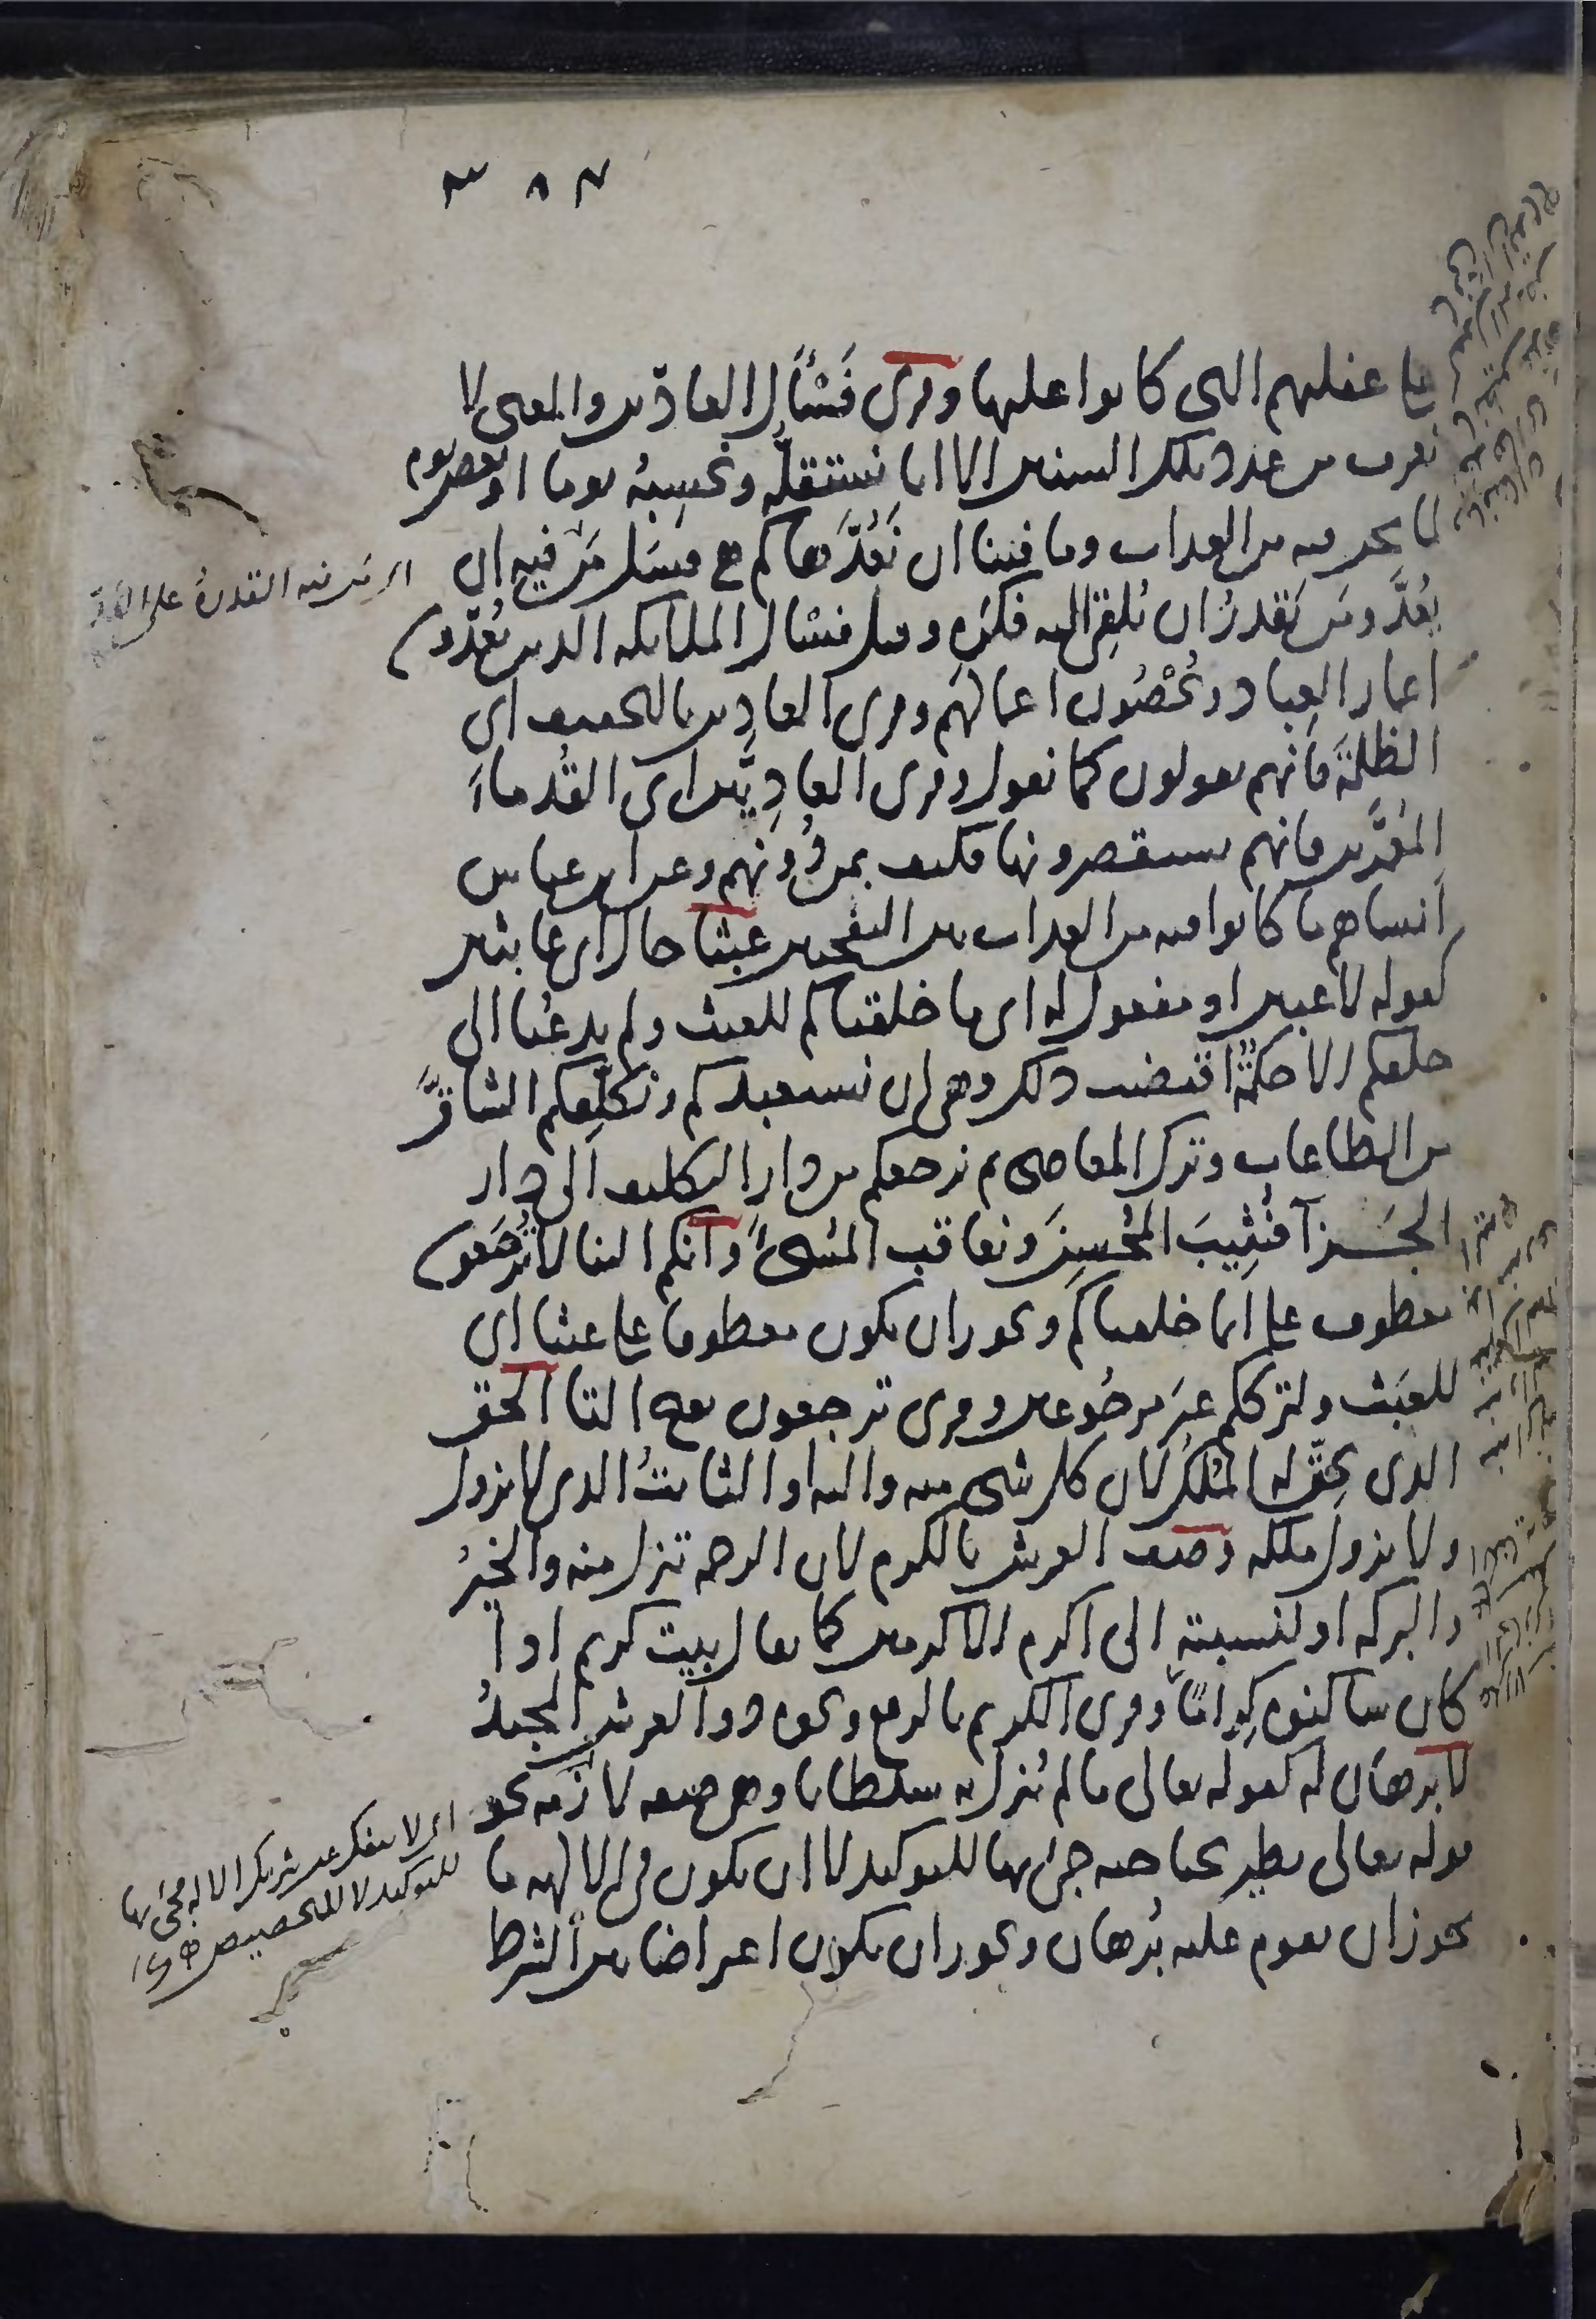 ٣٨٧
على غفلتهم التي كانوا عليها وقرئ فَسْئَل العادّين والمعنى لا
نعرف من عدد تلك السنين الا انا نستقلّه ونحسبهُ يوما او بعض يوم
لما نحن فيه من العذاب وما فينا ان نَعُدَّها كم هي فسَل مَن فيه ان
يَعُدَّ ومَن يَقدرُ ان يُلقِيَ اليه فكرَه وقيل فسئل الملائكه الذين يَعُدّون
اعمار العِباد ويُحْصُون اعمالهم وقرئ العادِين بالتخفيف اي
الظلمَةَ فانهم يقولون كما نقول وقرئ العادِيّين اي القُدماءَ
المُعَمَّرين فانهم يستقصرونها فكيف بمن دُونَهم وعن ابن عباس
انساهم ما كانوا فيه من العذاب بين النفختين عبثا حال اي عابثين
كقوله لاعبين او مفعول له اي ما خلقناكم للعبث ولم يدعُنا الى
خلقكم الا حكمةٌ اقتضت ذلك وهي ان نستعبدكم ونكلّفكم المشاقَّ
من الطاعات وترك المعاصي ثم نرجعكم من دار التكليف الى دار
الجَزآ فنُثِيبَ المُحسِنَ ونعاقب المُسئَ وانكم الينا لا تُرجَعون
معطوف على انما خلقناكم ويجوز ان يكون معطوفا على عبثا اي
للعبَث ولترككم غيَر مرجُوعين وقرئ ترجعون بفتح التا الحق
الذي يَحِقّ له المُلك لان كل شي منه واليه او الثابتُ الذي لا يزول
ولا يزول ملكه وصف العرش بالكرم لان الرحمه تنزل منه والخيرُ
والبركه او لنسبته الى اكرم الاكرمين كما يقال بيت كريم اذا
كان ساكنوه كِرامًا وقرئ الكريم بالرفع ونحوه ذو العرش المجيدُ
لا برهان له كقوله تعالى ما لم يُنزل به سلطانا وهي صفه لازمه نحو
قوله تعالى يطير بجناحيه جئ بها للتوكيد لا ان يكون في الالهه ما
يجوز ان يقوم عليه بُرهان ويجوز ان يكون اعتراضا بين الشرط
اي مَن فيه القدرة على
اي لا ينفك عن شريك الاله مجئ بها
للتوكيد لا للتخصيص